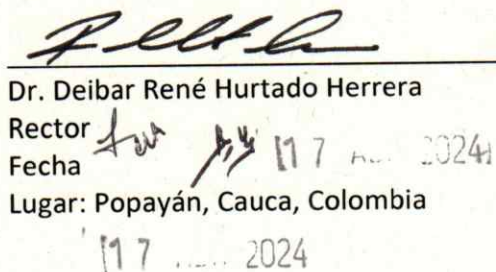 Dr. Deibar René Hurtado Herrera
Rector
Fecha 17 2024
Lugar: Popayán, Cauca, Colombia
17 2024